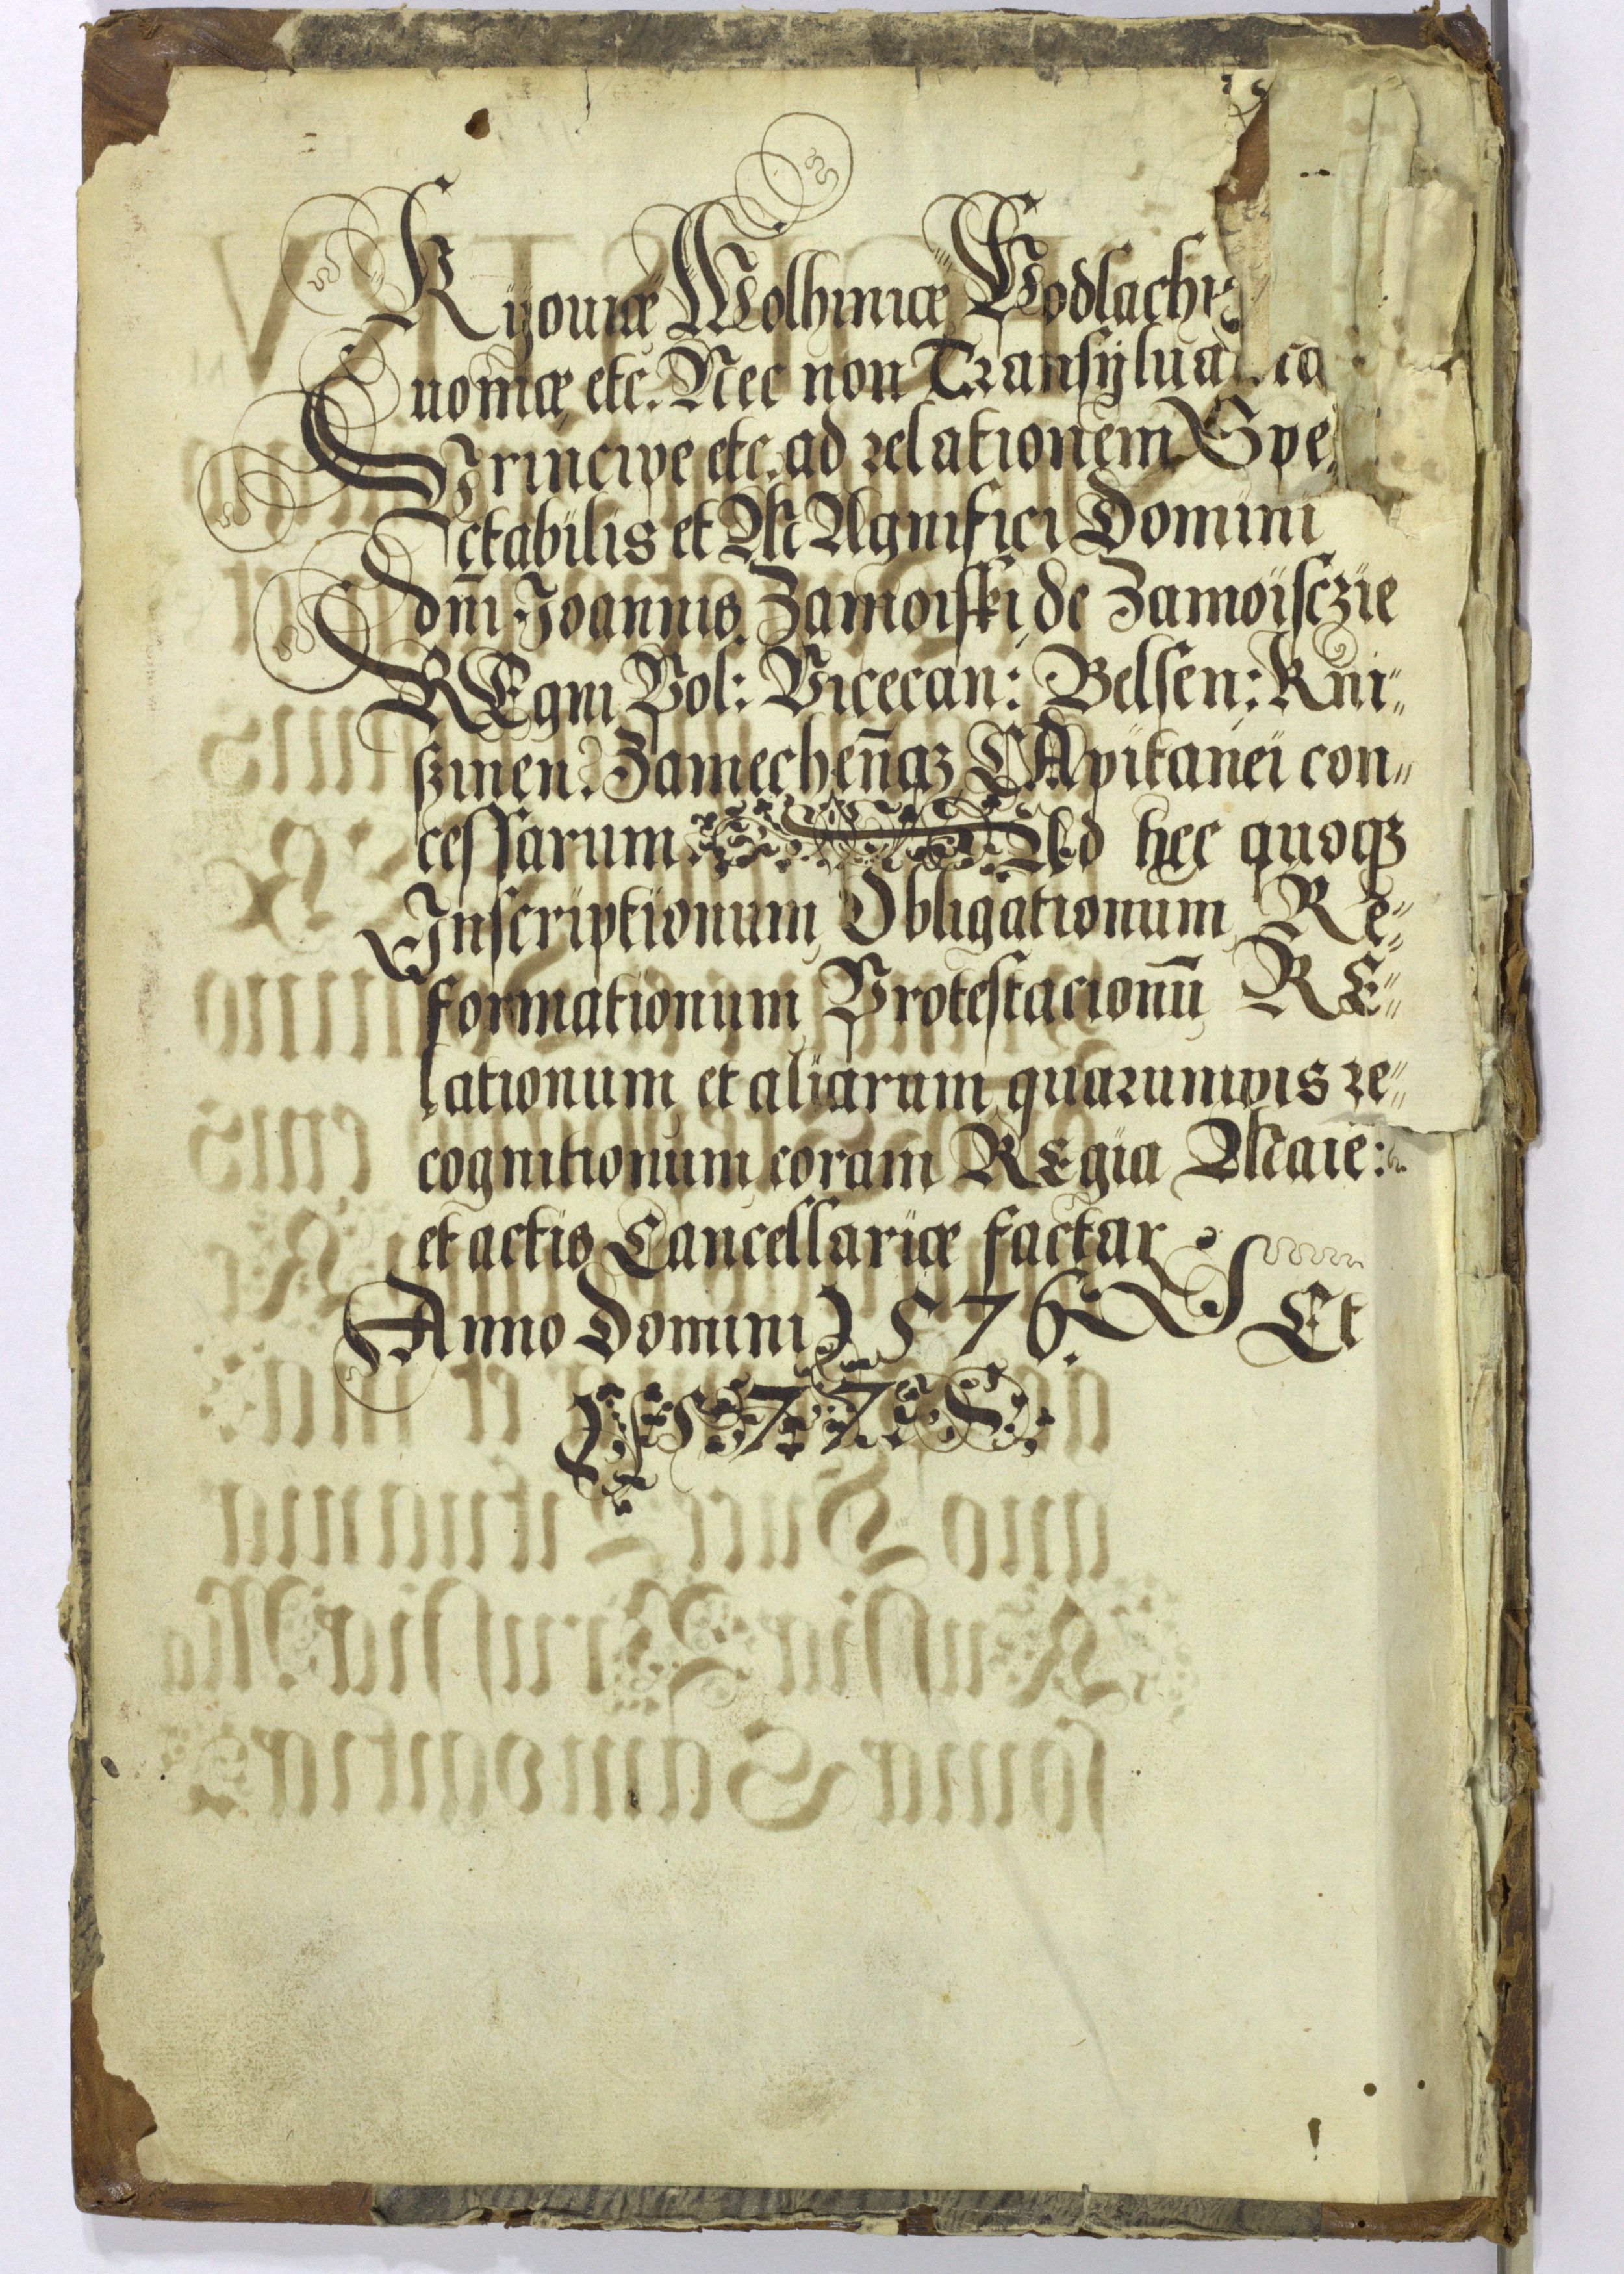 Kÿouiæ Wolhiniæ Podlachi
uoniæ etc. Nec non Transÿlua
Principe etc. ad relationem Spe
ctabilis et MAgnifici Domini
Dn̄i Joannis Zamoiski de Zamoisczie
REgni Pol: Vicecan: Belsen: Kni„
szinen: Zamechen̄qz CApitanei con„
cessarum. Ad hec quoqz
Inscriptionum Obligationum Re„
formationum Protestacionū RE„
lationum et aliarum quarumvis re„
cognitionum coram REgia Maie:
et actis Cancellariæ factar
Anno Domini 1576. Et
1577